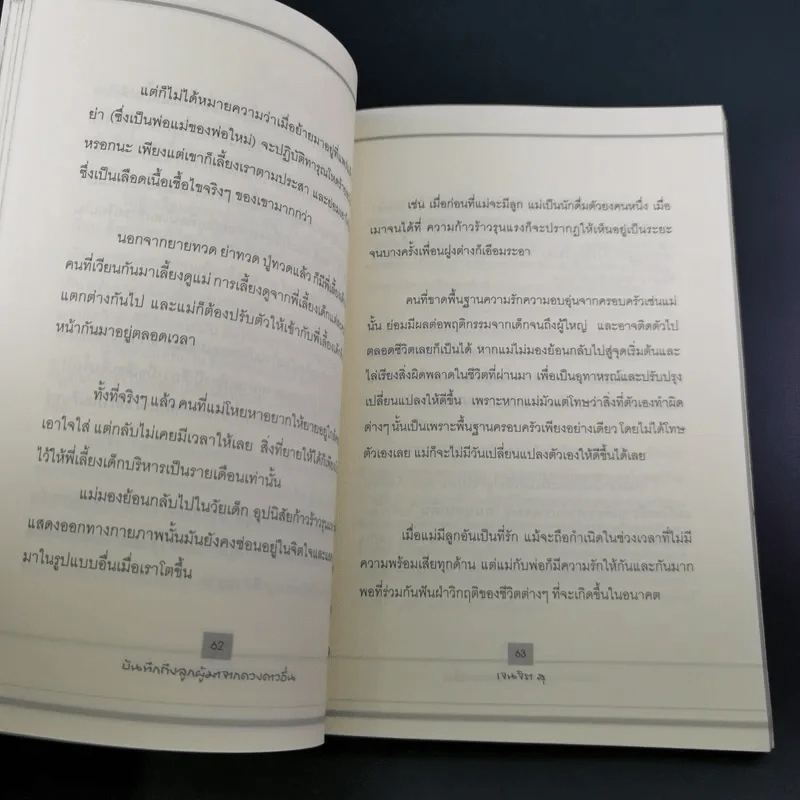 แต่ก็ไม่ได้หมายความว่าเมื่อย้ายมาอยู่ที่
ย่า (ซึ่งเป็นพ่อแม่ของพ่อใหม่) จะปฏิบัติทารุณโหดร้าย
หรอกนะ เพียงแต่เขาก็เลี้ยงเราตามประสา และย่อม
ซึ่งเป็นเลือดเนื้อเชื้อไขจริงๆ ของเขามากกว่า
นอกจากยายทวด ย่าทวด ปู่ทวดแล้ว ก็มีพี่เลี้ยง
คนที่เวียนกันมาเลี้ยงดูแม่ การเลี้ยงดูจากพี่เลี้ยงเด็ก
แตกต่างกันไป และแม่ก็ต้องปรับตัวให้เข้ากับพี่เลี้ยง
หน้ากันมาอยู่ตลอดเวลา
ทั้งที่จริงๆ แล้ว คนที่แม่โหยหาอยากให้ยายอยู่ใกล้
เอาใจใส่ แต่กลับไม่เคยมีเวลาให้เลย สิ่งที่ยายให้ได้ก็เพียง
ไว้ให้พี่เลี้ยงเด็กบริหารเป็นรายเดือนเท่านั้น
แม่มองย้อนกลับไปในวัยเด็ก อุปนิสัยก้าวร้าวรุนแรง
แสดงออกทางกายภาพนั้นมันยังคงซ่อนอยู่ในจิตใจและ
มาในรูปแบบอื่นเมื่อเราโตขึ้น
62
บันทึกถึงลูกผู้มาจากดวงดาวอื่น
เช่น เมื่อก่อนที่แม่จะมีลูก แม่เป็นนักดื่มตัวยงคนหนึ่ง เมื่อ
เมาจนได้ที่ ความก้าวร้าวรุนแรงก็จะปรากฏให้เห็นอยู่เป็นระยะ
จนบางครั้งเพื่อนฝูงต่างก็เอือมระอา
คนที่ขาดพื้นฐานความรักความอบอุ่นจากครอบครัวเช่นแม่
นั้น ย่อมมีผลต่อพฤติกรรมจากเด็กจนถึงผู้ใหญ่ และอาจติดตัวไป
ตลอดชีวิตเลยก็เป็นได้ หากแม่ไม่มองย้อนกลับไปสู่จุดเริ่มต้นและ
ไล่เรียงสิ่งผิดพลาดในชีวิตที่ผ่านมา เพื่อเป็นอุทาหรณ์และปรับปรุง
เปลี่ยนแปลงให้ดีขึ้น เพราะหากแม่มัวแต่โทษว่าสิ่งที่ตัวเองทำผิด
ต่างๆ นั้นเป็นเพราะพื้นฐานครอบครัวเพียงอย่างเดียว โดยไม่ได้โทษ
ตัวเองเลย แม่ก็จะไม่มีวันเปลี่ยนแปลงตัวเองให้ดีขึ้นได้เลย
เมื่อแม่มีลูกอันเป็นที่รัก แม้จะถือกำเนิดในช่วงเวลาที่ไม่มี
ความพร้อมเสียทุกด้าน แต่แม่กับพ่อก็มีความรักให้กันและกันมาก
พอที่ร่วมกันฟันฝ่าวิกฤติของชีวิตต่างๆ ที่จะเกิดขึ้นในอนาคต
63
เจนจิตา สุ